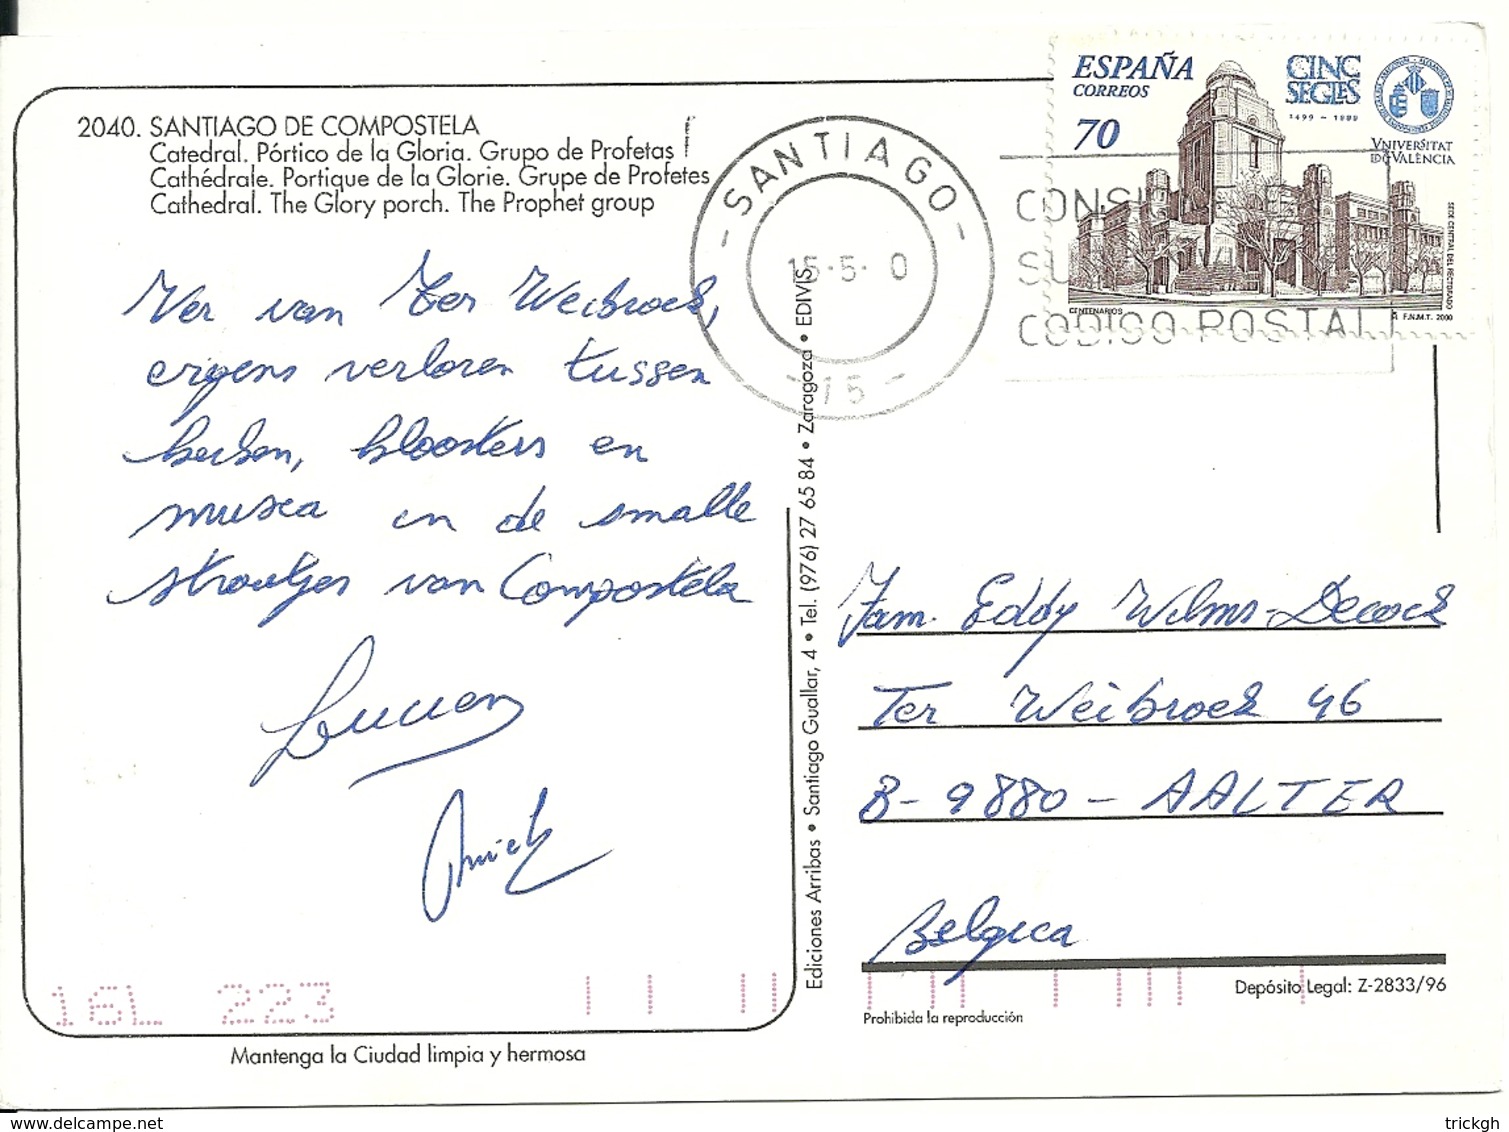 2040. SANTIAGO DE COMPOSTELA
Catedral. Pórtico de la Gloria. Grupo de Profetas
Cathédrale. Portique de la Glorie. Grupe de Profetes
Cathedral. The Glory porch. The Prophet group
Ver van Ter Weibroek,
ergens verloren tussen
kerken, kloosters en
musea in de smalle
straatjes van Compostela
Lucien
Mantenga la Ciudad limpia y hermosa
16L 223
Ediciones Arribas • Santiago Guallar, 4 • Tel. (976) 27 65 84 • Zaragoza • EDIVIS
- SANTIAGO -
15·5· 0
- 15 -
ESPAÑA
CORREOS
70
CINC
SEGLES
1499 - 1999
VNIVERSITAT
DE VALÈNCIA
SEDE CENTRAL DEL RECTORADO
CENTENARIOS
F.N.M.T. 2000
CODIGO POSTAL
Fam. Eddy Wilms-Decock
Ter Weibroek 46
B-9880 - AALTER
Belgica
Depósito Legal: Z-2833/96
Prohibida la reproducción
www.delcampe.net
trickgh